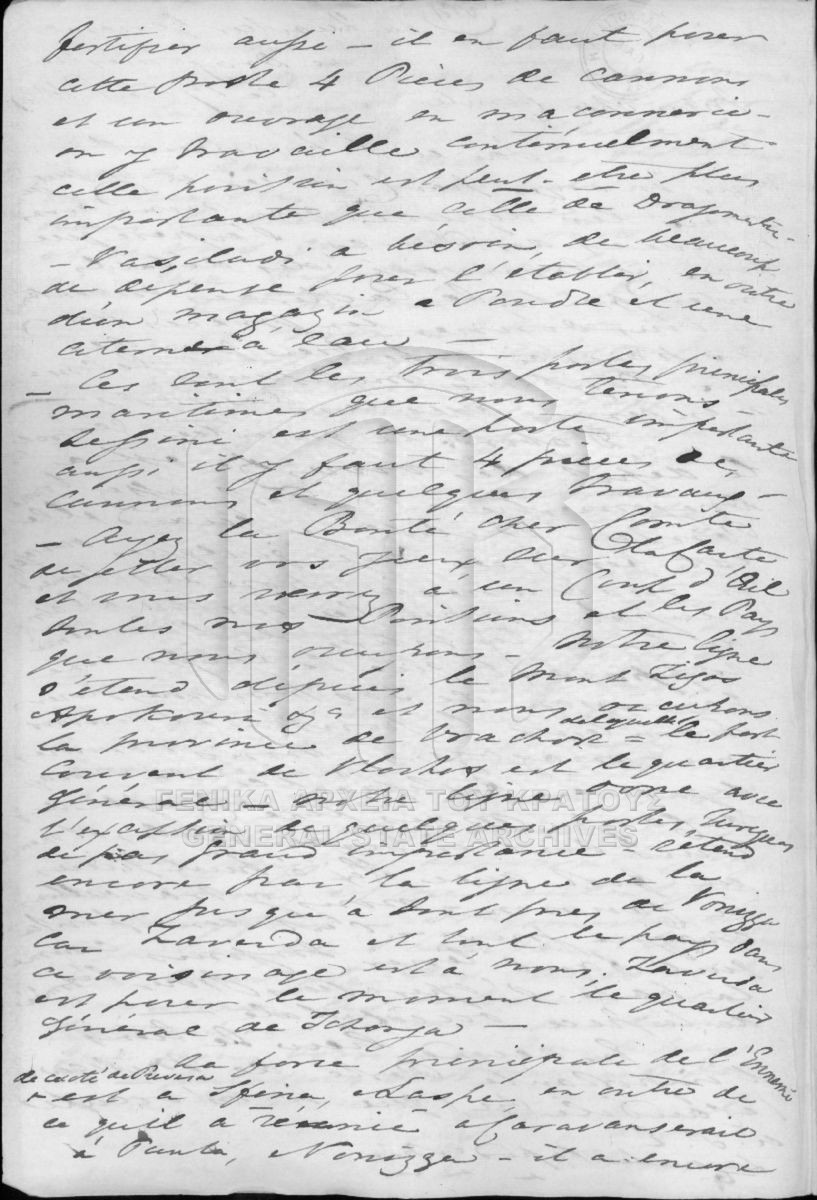 fortifier aussi – il en faut pour
cette poste 4 Pièces de cannons
et un ouvrage en maconnerie –
on y travaille continuelment
cette position est peut-etre plus
importante que celle de Dragomestre –
– Vasiladi a bésoin, de beaucoup
de depense pour l'etablir, en outre
d'un magazin a Poudre et une
citerne à l'eau –
– Ces sont les trois postes principales
maritimes que nous tenons –
est une poste importante
aussi il y faut 4 pieces de
cannons et quelques travaux –
– Ayez la Bonté cher Comte
de jetter vos yeux sur la Carte
et vous verrez à un Coup d'Œil
toutes nos Positions et les Pays
que nous occupons – notre ligne
s'etend dépuis le Mont Zigos
Apokouro et nous occupons
la province de Vrachori = delaquelle le fort
Couvent de Vlochos est le quartier
Général – notre ligne avec
l'exception de quelques postes Turques
de pas grand importance – s'etend
encore par la ligne de la
mer jusqu'à tout pres de Vonizza
car Zaverda et tout le pays dans
ce voisinage est à nous, Zaverda
est pour le moment le quartier
Général de Tchonga –
la force principale de l'Ennemi
de coté de Prevesa
– est a en outre de
ce qu'il a réunié a Caravanserail
à Punta, Vonizza – il a encore
ΓΕΝΙΚΑ ΑΡΧΕΙΑ ΤΟΥ ΚΡΑΤΟΥΣ
GENERAL STATE ARCHIVES